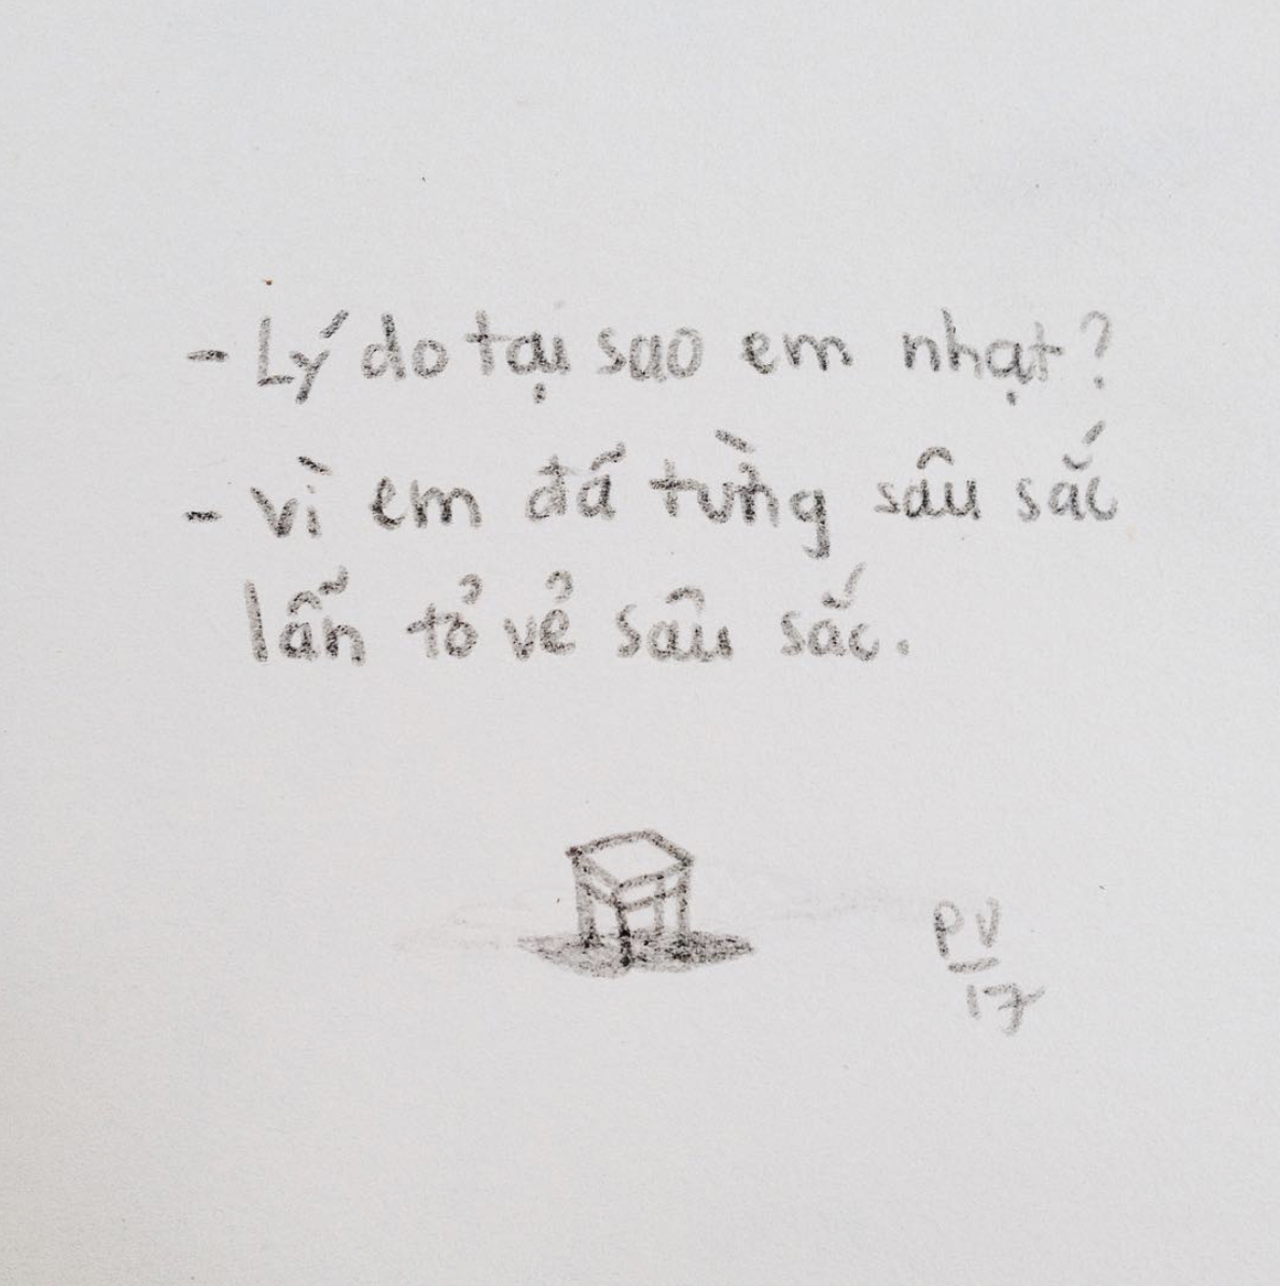 - Lý do tại sao em nhạt?
- vì em đã từng sâu sắc
lẫn tỏ vẻ sâu sắc.
PV
17